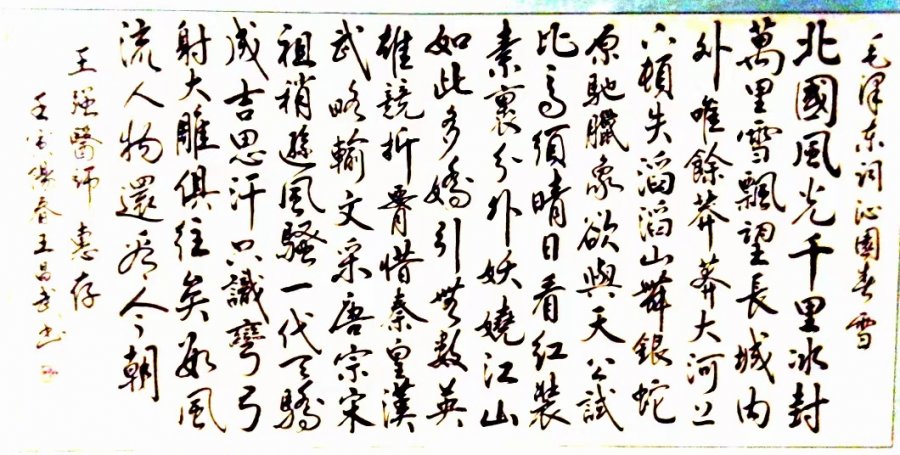 毛澤东词沁園春雪
北國風光千里冰封
萬里雪飄望長城内
外唯餘莽莽大河上
下頓失滔滔山舞銀蛇
原馳臘象欲與天公試
比高須晴日看红裝
素裹分外妖嬈江山
如此多嬌引無數英
雄競折腰惜秦皇漢
武略輸文采唐宗宋
祖稍遜風騷一代天驕
成吉思汗只識彎弓
射大雕俱往矣数風
流人物還看今朝
王强醫师惠存
壬寅陽春王昌武书